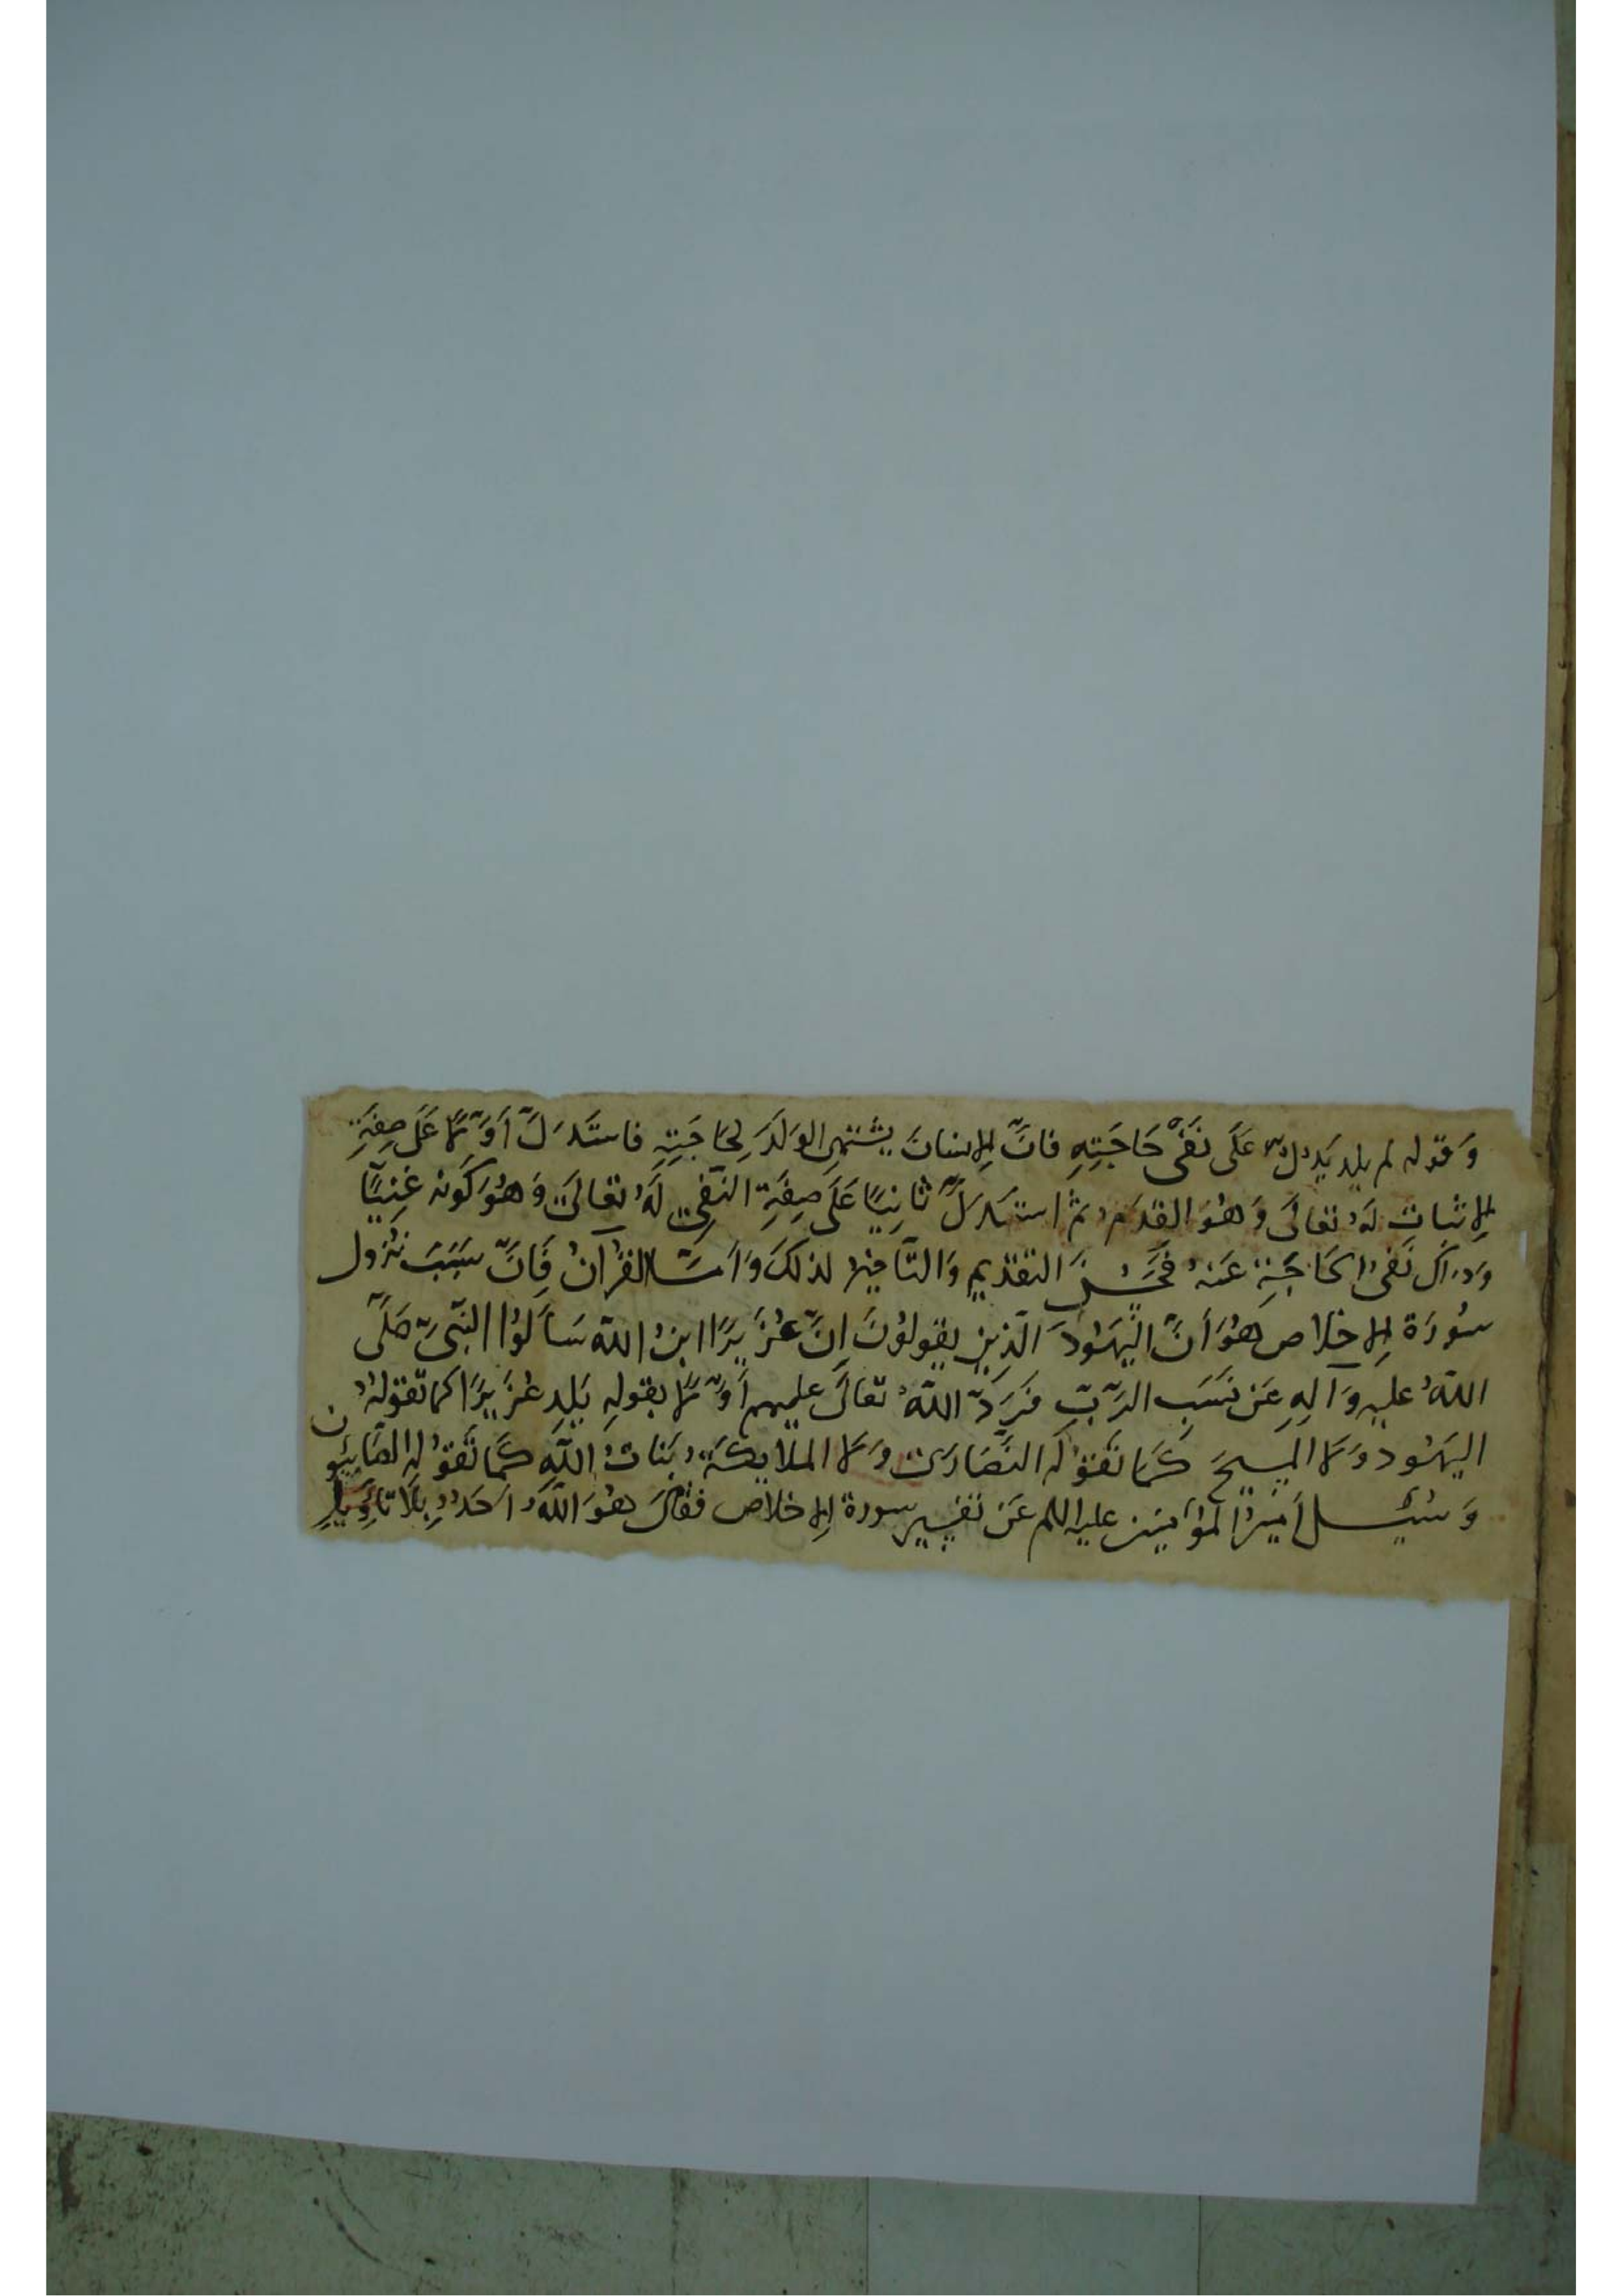 وَقوله لم يلد يَدُلُّ عَلَى نَفْيِ حَاجَتِهِ فانَّ الإنسَانَ يشتهي الوَلَدَ لِحَاجَتِهِ فاستَدَلَّ أوَّلًا عَلَى صِفَةِ
الإثباتِ لَهُ تعَالَى وَهُوَ القِدَمُ ثم استَدَلَّ ثَانِيًا عَلَى صِفَةِ النَّفِي لَهُ تعَالَى وَهُوَ كَونُه غَنِيًّا
نَفْيُ الحَاجَةِ عَنهُ فَحَسُنَ التقدِيمُ وَالتأخِيرُ لذلكَ وَأَمَّا القُرانُ فَانَّ سَبَبَ نُزُول
سُورَة الإخلاص هُوَ أنَّ اليَهُودَ الّذين يقولوُنَ إنَّ عُزَيرًا ابنُ الله سَألُوا النَّبِيَّ صَلَّى
اللهُ عليه وَآلِهِ عَن نَسَبِ الرَّبِّ فَرَدَّ اللهُ تعَالَى عليهم أوَّلًا بقولِه يَلِد عُزَيرًا كما تقولُهُ
اليَهُود وَلا المَسِيحَ كَمَا تَقُولُه النَّصَارَى وَلا الملايكَةُ بَنَاتُ اللهِ كَمَا تَقُولُه الصَّابِئُون
وَسُئِلَ أمِيرُ المُؤمِنِينَ عليه السلم عَن تَفسِيرِ سورة الإخلاص فقَالَ هُوَ اللهُ أحَدٌ بِلَا تَأوِيلِ